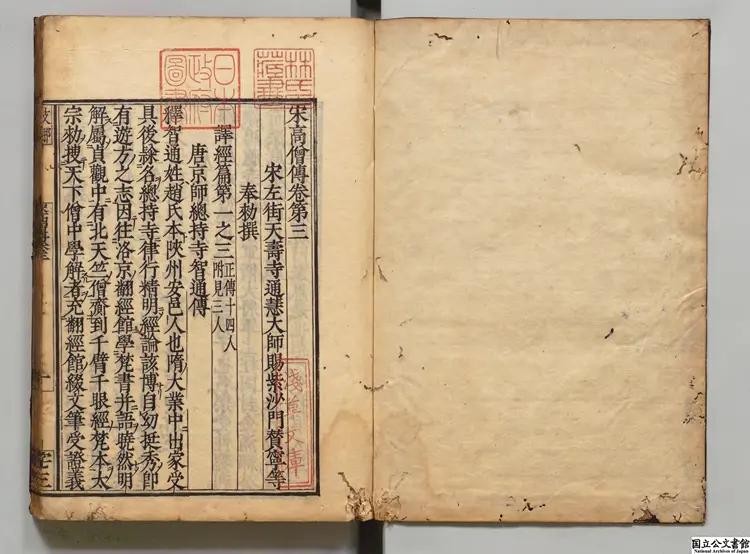 宋高僧傳卷第三
宋左街天壽寺通慧大師賜紫沙門賛寧等
奉勑撰
譯經篇第一之三正傳十四人
附見三人
唐京師總持寺智通傳
釋智通姓趙氏本陜州安邑人也隋大業中出家受
具後隸名總持寺律行精明經論該博自幼挺秀即
有遊方之志因往洛京翻經館學梵書并語曉然明
解屬貞觀中有北天竺僧齎到千臂千眼經梵本太
宗勑搜天下僧中學解者充翻經館綴文筆受證義
日本
政府
圖書
林氏
藏書
淺草文庫
国立公文書館
National Archives of Japan